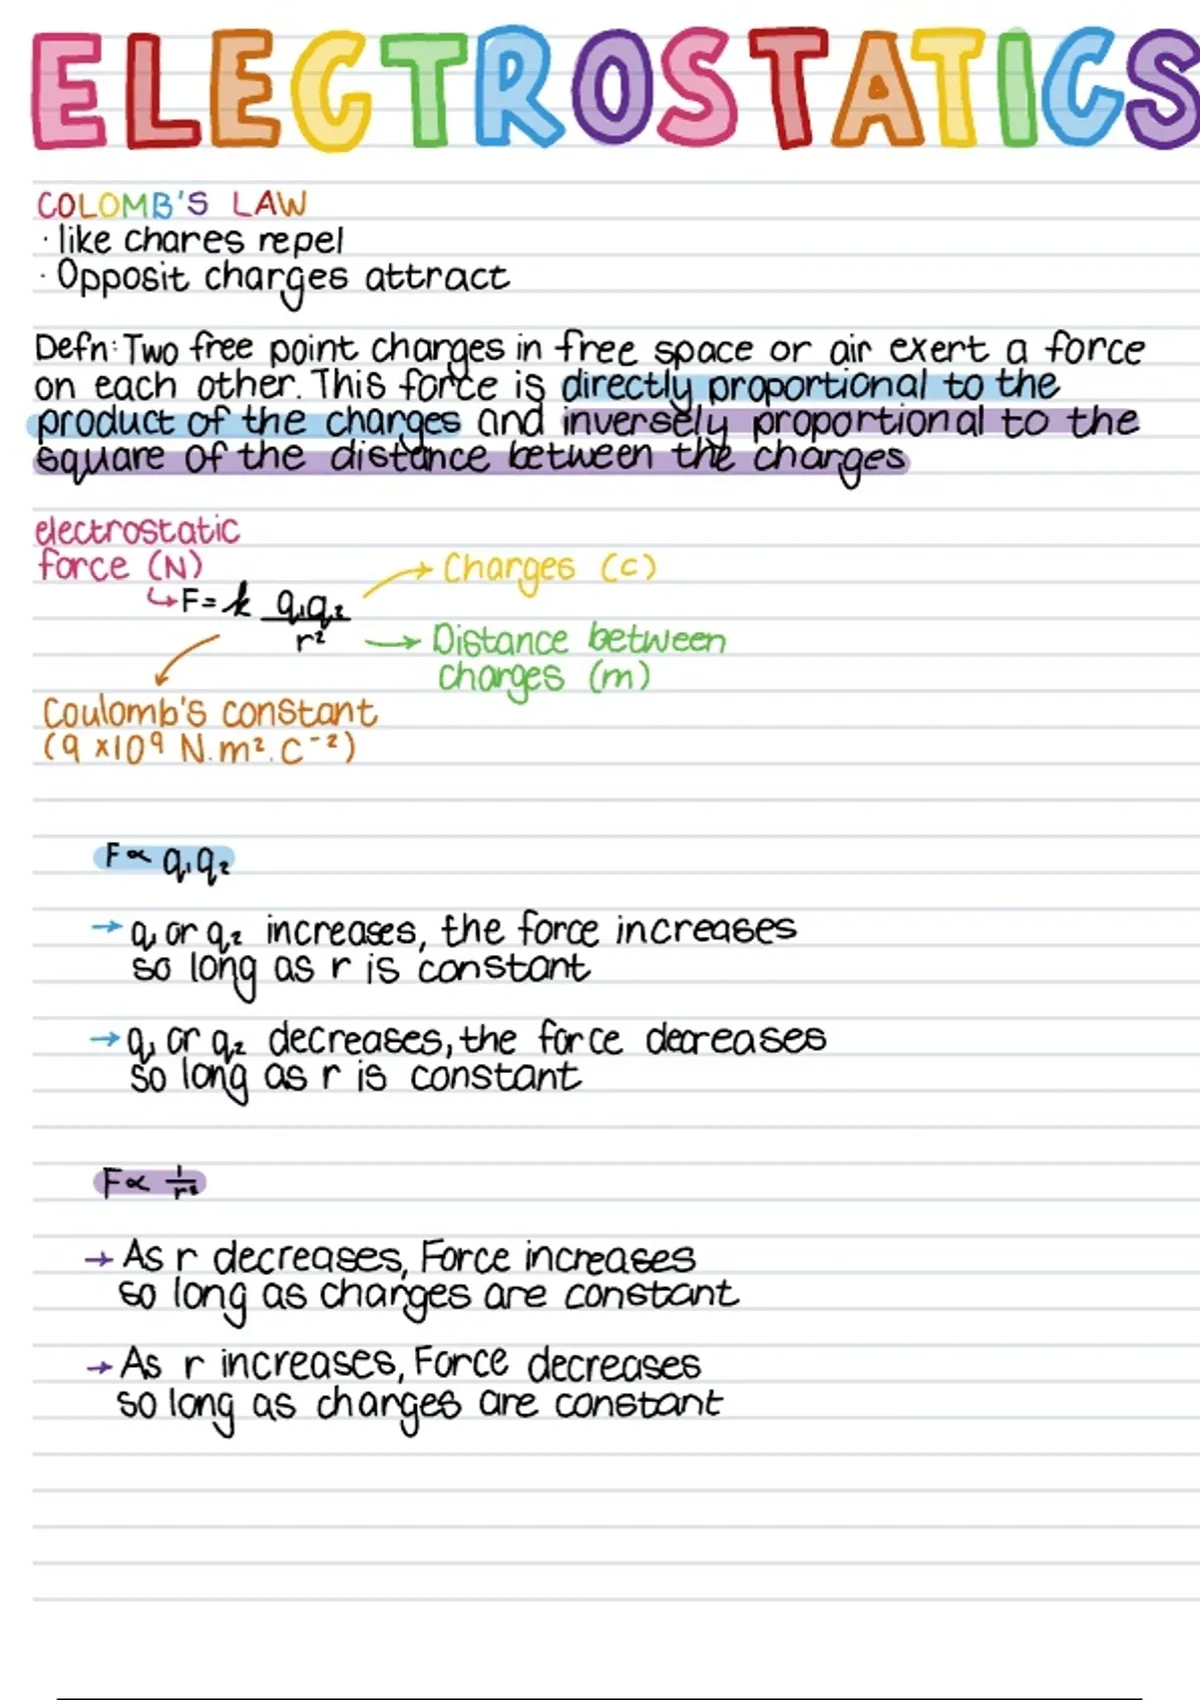 ELECTROSTATICS
COLOMB'S LAW
· like chares repel
· Opposit charges attract
Defn: Two free point charges in free space or air exert a force
on each other. This force is directly proportional to the
product of the charges and inversely proportional to the
square of the distance between the charges
electrostatic
force (N)
Charges (C)
↳F = k q₁q₂
r²
Distance between
charges (m)
Coulomb's constant
(9 ×10⁹ N.m².C⁻²)
F ∝ q₁q₂
→ q₁ or q₂ increases, the force increases
so long as r is constant
→ q₁ or q₂ decreases, the force decreases
so long as r is constant
F ∝ 1/r²
→ As r decreases, Force increases
so long as charges are constant
→ As r increases, Force decreases
so long as charges are constant